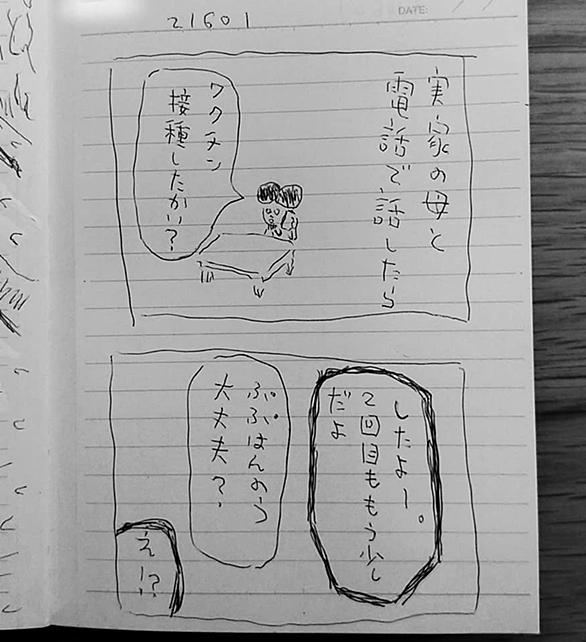 DATE:
21601
実家の母と
電話で話したら
ワクチン
接種したかい?
したよー。
2回目ももう少し
だよ
ぷぷはんのう
大丈夫?
え!?